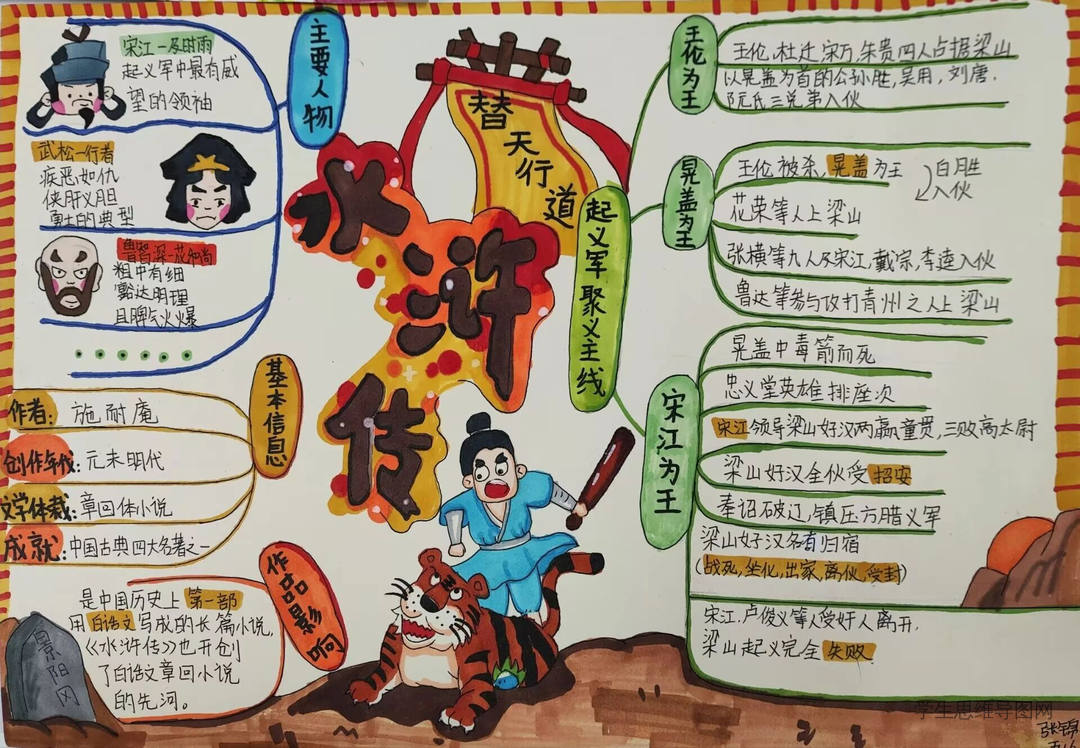 水浒传
替天行道
主要人物
宋江—及时雨
起义军中最有威
望的领袖
武松—行者
疾恶如仇
侠肝义胆
勇士的典型
鲁智深—花和尚
粗中有细
豁达明理
且脾气火爆
基本信息
作者：施耐庵
创作年代：元末明代
文学体裁：章回体小说
成就：中国古典四大名著之一
作品影响
是中国历史上第一部
用白话文写成的长篇小说，
《水浒传》也开创
了白话文章回小说
的先河。
景阳冈
起义军聚义主线
王伦为王
王伦，杜迁，宋万，朱贵四人占据梁山
以晁盖为首的公孙胜，吴用，刘唐，
阮氏三兄弟入伙
晁盖为王
王伦被杀，晁盖为王
白胜
入伙
花荣等人上梁山
张横等九人及宋江，戴宗，李逵入伙
鲁达等参与攻打青州之人上梁山
宋江为王
晁盖中毒箭而死
忠义堂英雄排座次
宋江领导梁山好汉两赢童贯，三败高太尉
梁山好汉全伙受招安
奉诏破辽，镇压方腊义军
梁山好汉各有归宿
（战死，坐化，出家，离伙，受封）
宋江，卢俊义等人受奸人离开，
梁山起义完全失败．
学生思维导图网